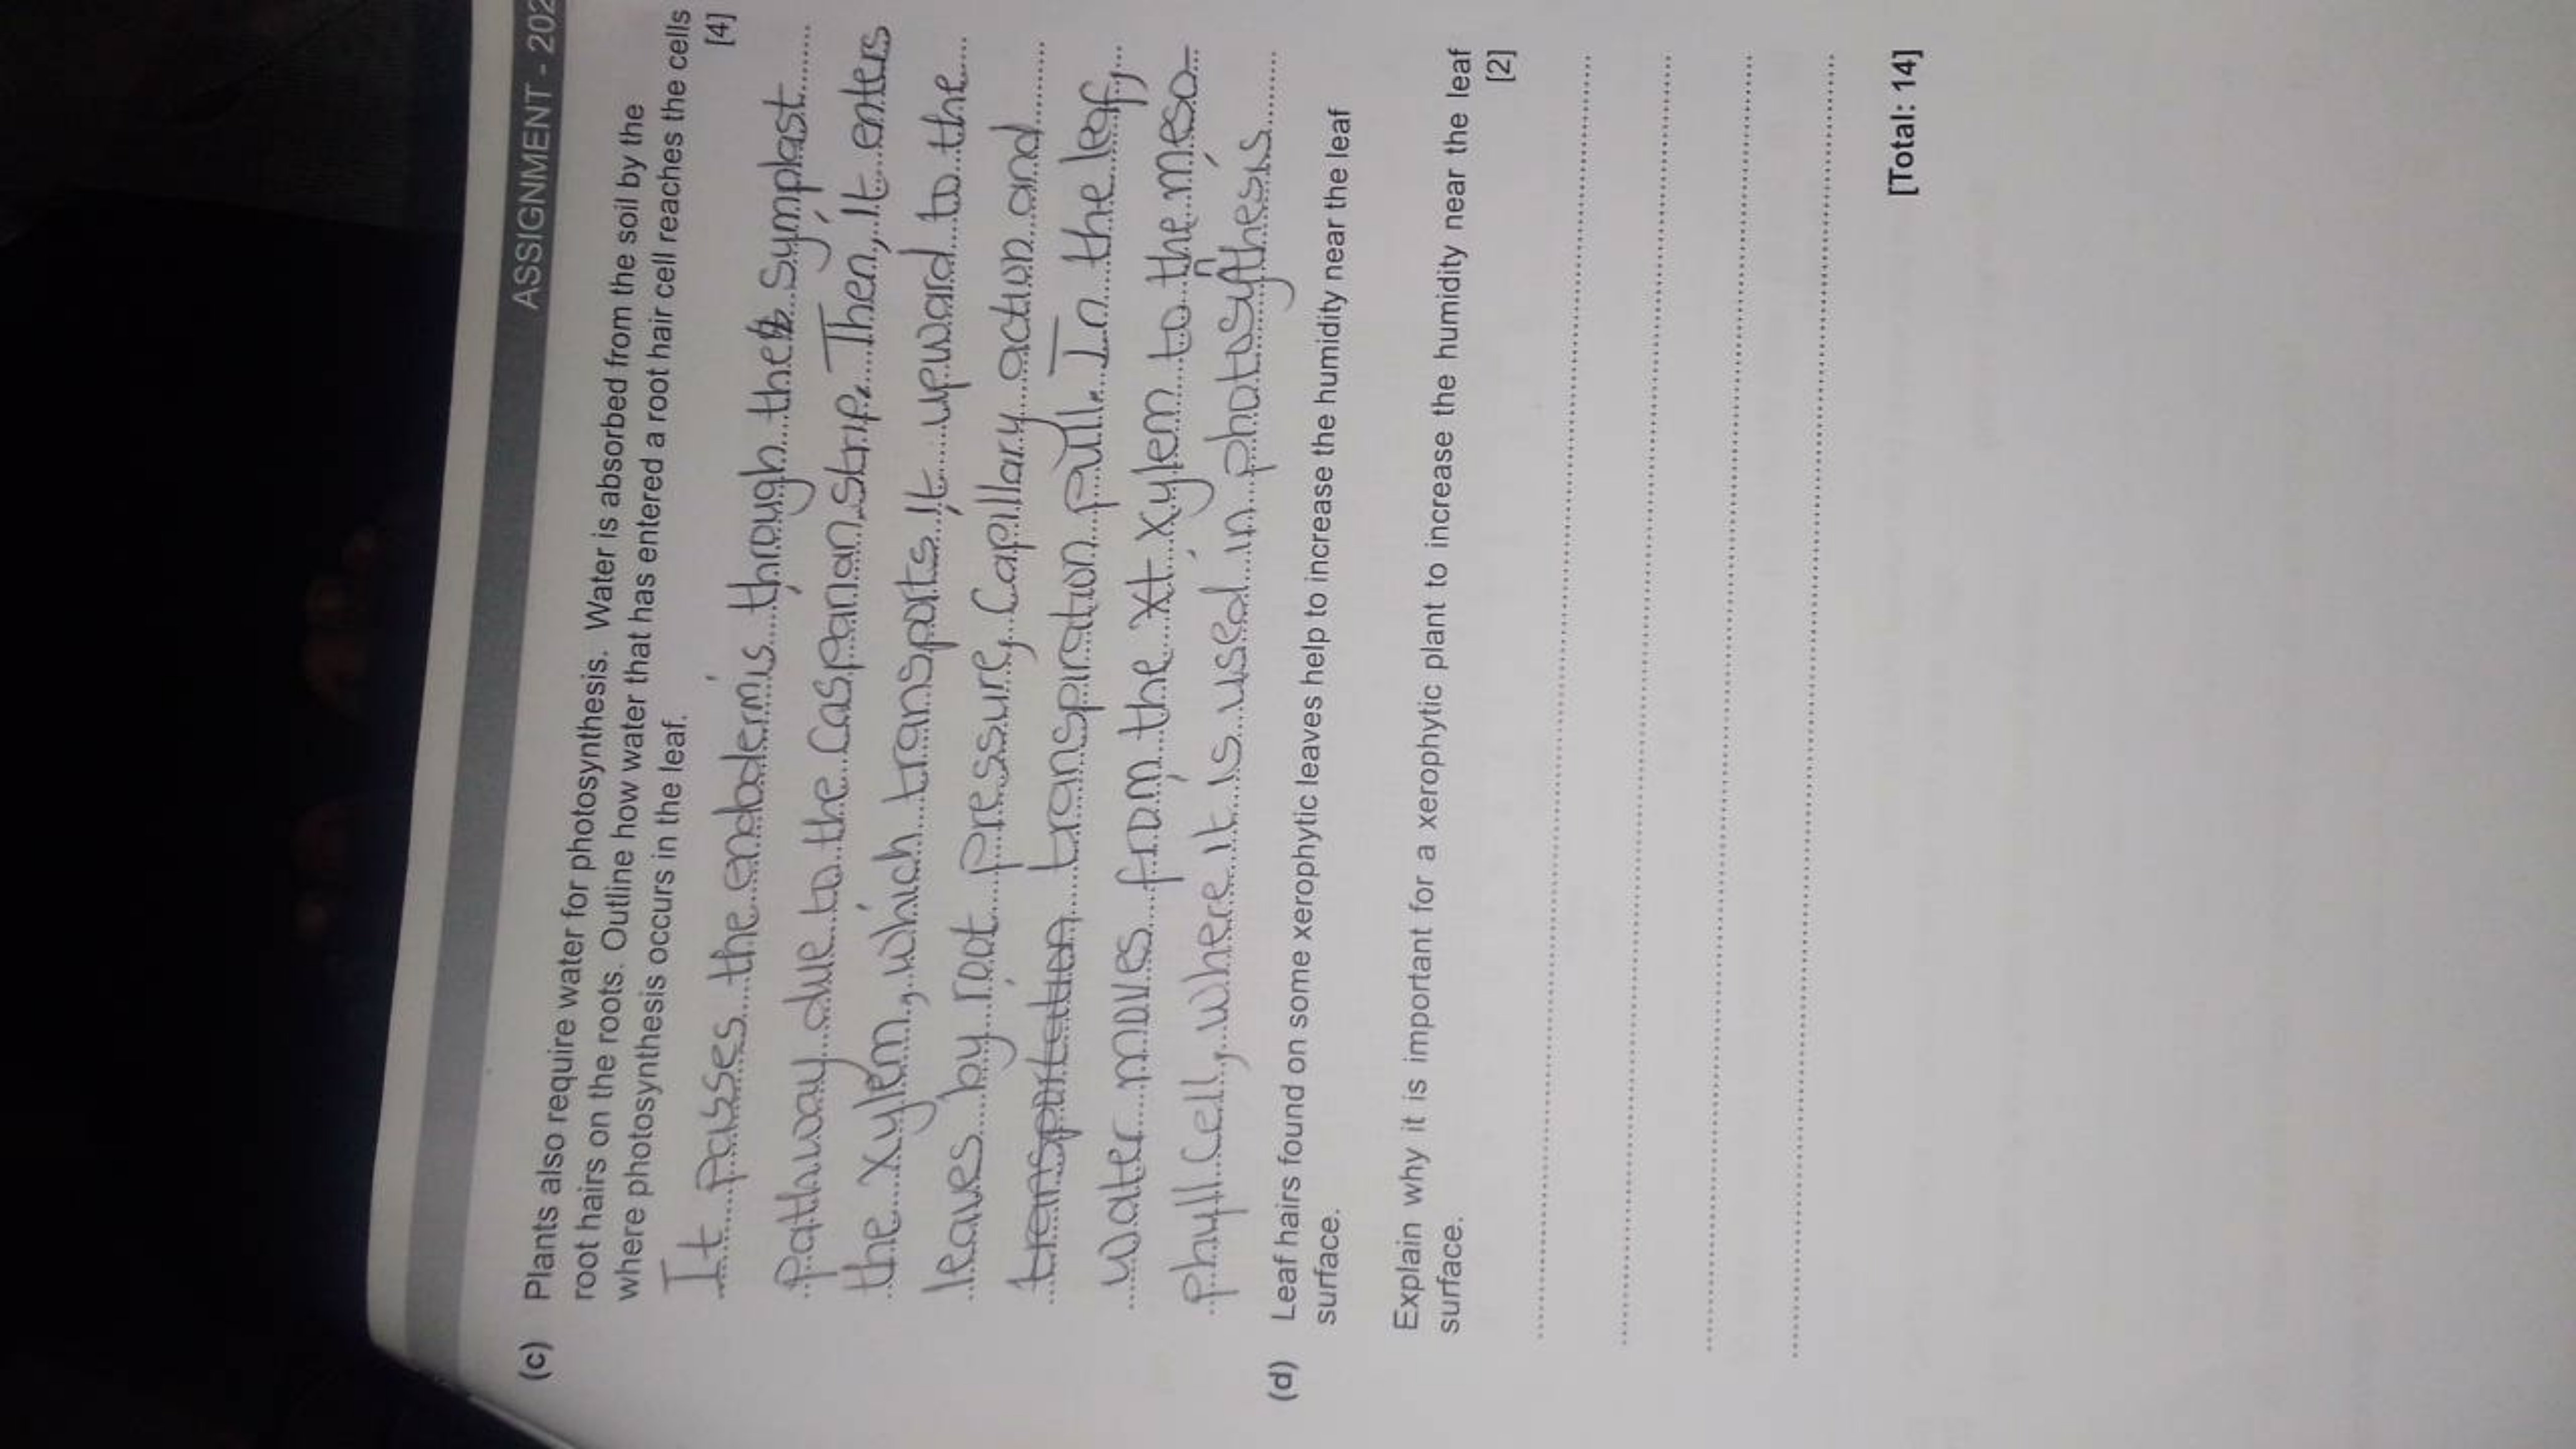 ASSIGNMENT - 202
(c) Plants also require water for photosynthesis. Water is absorbed from the soil by the
root hairs on the roots. Outline how water that has entered a root hair cell reaches the cells
where photosynthesis occurs in the leaf. [4]
It passes the endodermis through the symplast
pathway due to the Casparian strip. Then, it enters
the xylem, which transports it upward to the
leaves by root pressure, Capillary action and
transportation transpiration pull. In the leaf,
water moves from the xt xylem to the meso-
phyll cell, where it is used in photosynthesis
(d) Leaf hairs found on some xerophytic leaves help to increase the humidity near the leaf
surface.
Explain why it is important for a xerophytic plant to increase the humidity near the leaf
surface. [2]
[Total: 14]